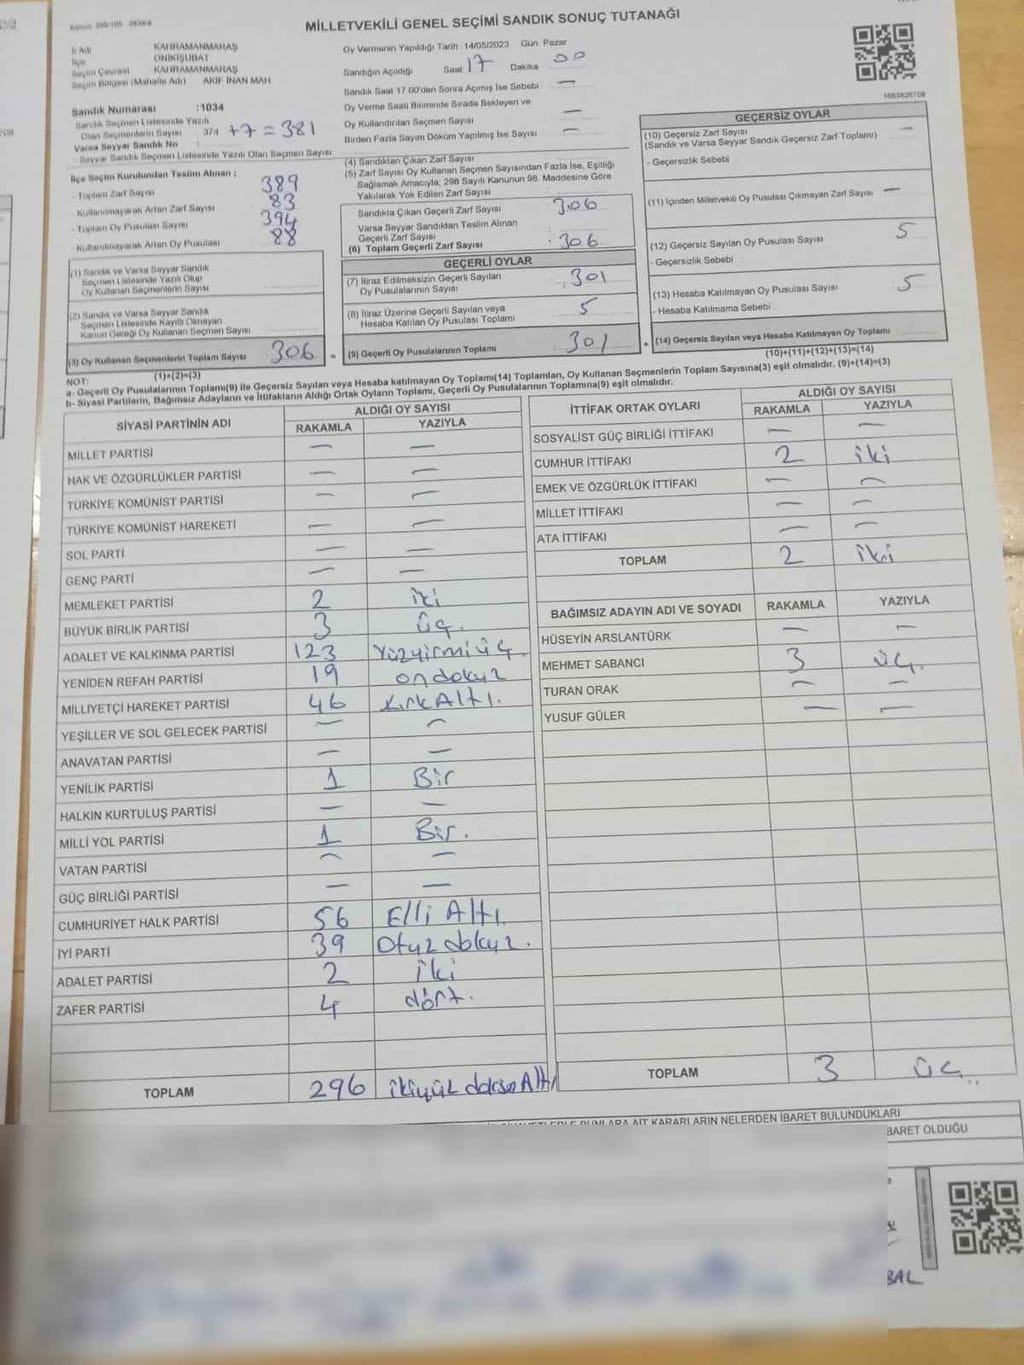 MİLLETVEKİLİ GENEL SEÇİMİ SANDIK SONUÇ TUTANAĞI
İl Adı KAHRAMANMARAŞ
İlçe ONİKİŞUBAT
Seçim Çevresi KAHRAMANMARAŞ
Seçim Bölgesi (Mahalle Adı) AKİF İNAN MAH
Sandık Numarası :1034
Sandık Seçmen Listesinde Yazılı
Olan Seçmenlerin Sayısı 374 +7 = 381
Varsa Seyyar Sandık No
Seyyar Sandık Seçmen Listesinde Yazılı Olan Seçmen Sayısı
İlçe Seçim Kurulundan Teslim Alınan ;
- Toplam Zarf Sayısı 389
- Kullanılmayarak Artan Zarf Sayısı 83
- Toplam Oy Pusulası Sayısı 394
- Kullanılmayarak Artan Oy Pusulası 88
(1) Sandık ve Varsa Seyyar Sandık
Seçmen Listesinde Yazılı Olup
Oy Kullanan Seçmenlerin Sayısı
(2) Sandık ve Varsa Seyyar Sandık
Seçmen Listesinde Kayıtlı Olmayan
Kanun Gereği Oy Kullanan Seçmen Sayısı
(3) Oy Kullanan Seçmenlerin Toplam Sayısı 306
(1)+(2)=(3)
Oy Vermenin Yapıldığı Tarih 14/05/2023 Gün: Pazar
Sandığın Açıldığı Saat 17 Dakika 00
Sandık Saat 17.00'den Sonra Açımış İse Sebebi —
Oy Verme Saati Bitiminde Sırada Bekleyen ve
Oy Kullandırılan Seçmen Sayısı —
Birden Fazla Sayım Döküm Yapılmış İse Sayısı —
(4) Sandıktan Çıkan Zarf Sayısı
(5) Zarf Sayısı Oy Kullanan Seçmen Sayısından Fazla İse, Eşitliği
Sağlamak Amacıyla, 298 Sayılı Kanunun 98. Maddesine Göre
Yakılarak Yok Edilen Zarf Sayısı
Sandıkta Çıkan Geçerli Zarf Sayısı 306
Varsa Seyyar Sandıktan Teslim Alınan
Geçerli Zarf Sayısı
(6) Toplam Geçerli Zarf Sayısı 306
GEÇERLİ OYLAR
(7) İtiraz Edilmeksizin Geçerli Sayılan
Oy Pusulalarının Sayısı 301
(8) İtiraz Üzerine Geçerli Sayılan veya
Hesaba Katılan Oy Pusulası Toplamı 5
= (9) Geçerli Oy Pusulalarının Toplamı 301
1083826708
GEÇERSİZ OYLAR
(10) Geçersiz Zarf Sayısı —
(Sandık ve Varsa Seyyar Sandık Geçersiz Zarf Toplamı)
- Geçersizlik Sebebi
(11) İçinden Milletvekili Oy Pusulası Çıkmayan Zarf Sayısı —
(12) Geçersiz Sayılan Oy Pusulası Sayısı 5
- Geçersizlik Sebebi
(13) Hesaba Katılmayan Oy Pusulası Sayısı 5
- Hesaba Katılmama Sebebi
+ (14) Geçersiz Sayılan veya Hesaba Katılmayan Oy Toplamı
(10)+(11)+(12)+(13)=(14)
NOT:
a- Geçerli Oy Pusulalarının Toplamı(9) ile Geçersiz Sayılan veya Hesaba katılmayan Oy Toplamı(14) Toplamları, Oy Kullanan Seçmenlerin Toplam Sayısına(3) eşit olmalıdır. (9)+(14)=(3)
b- Siyasi Partilerin, Bağımsız Adayların ve İttifakların Aldığı Ortak Oyların Toplamı, Geçerli Oy Pusulalarının Toplamına(9) eşit olmalıdır.
SİYASİ PARTİNİN ADI ALDIĞI OY SAYISI
RAKAMLA YAZIYLA
MİLLET PARTİSİ — —
HAK VE ÖZGÜRLÜKLER PARTİSİ — —
TÜRKİYE KOMÜNİST PARTİSİ — —
TÜRKİYE KOMÜNİST HAREKETİ — —
SOL PARTİ — —
GENÇ PARTİ — —
MEMLEKET PARTİSİ 2 iki
BÜYÜK BİRLİK PARTİSİ 3 üç.
ADALET VE KALKINMA PARTİSİ 123 Yüzyirmi üç
YENİDEN REFAH PARTİSİ 19 on dokuz
MİLLİYETÇİ HAREKET PARTİSİ 46 Kırk Altı.
YEŞİLLER VE SOL GELECEK PARTİSİ — —
ANAVATAN PARTİSİ — —
YENİLİK PARTİSİ 1 Bir
HALKIN KURTULUŞ PARTİSİ — —
MİLLİ YOL PARTİSİ 1 Bir.
VATAN PARTİSİ — —
GÜÇ BİRLİĞİ PARTİSİ — —
CUMHURİYET HALK PARTİSİ 56 Elli Altı
İYİ PARTİ 39 Otuz dokuz.
ADALET PARTİSİ 2 iki
ZAFER PARTİSİ 4 dört.
TOPLAM 296 ikiyüz doksan Altı
İTTİFAK ORTAK OYLARI ALDIĞI OY SAYISI
RAKAMLA YAZIYLA
SOSYALİST GÜÇ BİRLİĞİ İTTİFAKI — —
CUMHUR İTTİFAKI 2 iki
EMEK VE ÖZGÜRLÜK İTTİFAKI — —
MİLLET İTTİFAKI — —
ATA İTTİFAKI — —
TOPLAM 2 iki
BAĞIMSIZ ADAYIN ADI VE SOYADI RAKAMLA YAZIYLA
HÜSEYİN ARSLANTÜRK — —
MEHMET SABANCI 3 üç.
TURAN ORAK — —
YUSUF GÜLER — —
TOPLAM 3 üç
KARARLARIN NELERDEN İBARET BULUNDUKLARI
BARET OLDUĞU
BAL